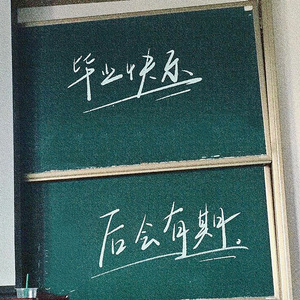 毕业快乐
后会有期.